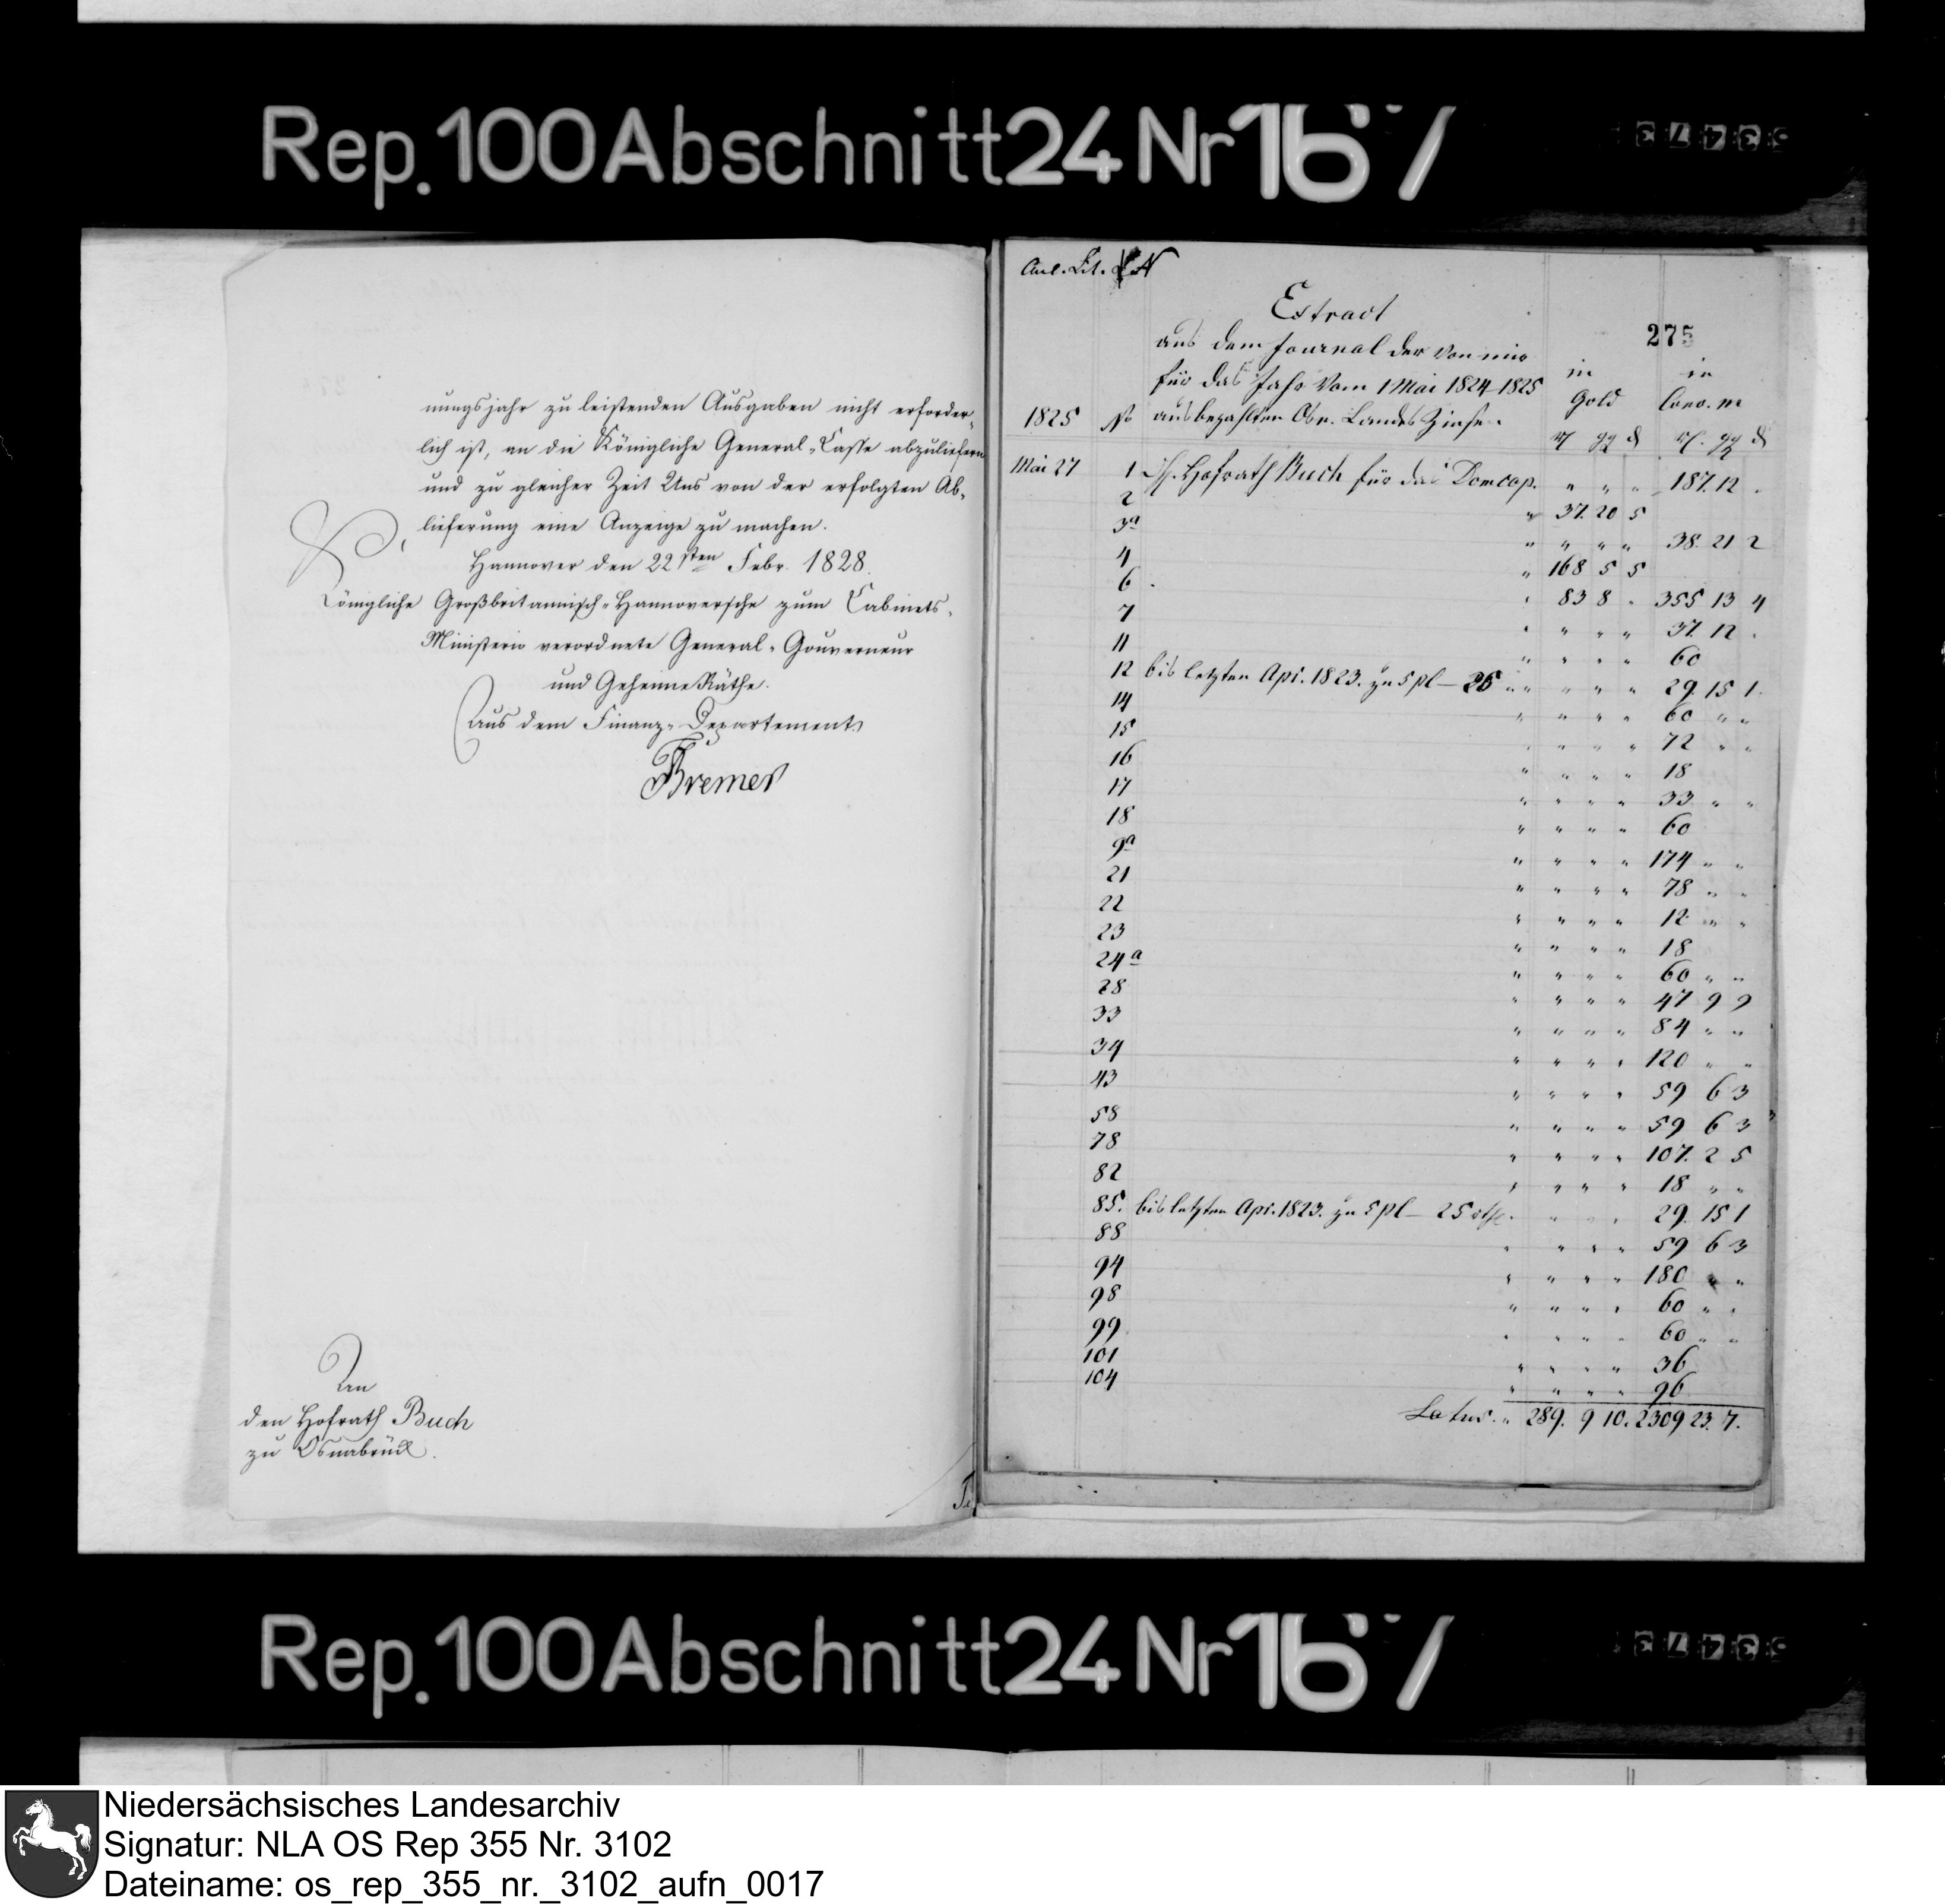 Rep. 100 Abschnitt 24 Nr 167
nungsjahr zu leistenden Ausgaben nicht erforder-
lich ist, an die Königliche General-Casse abzuliefern
und zu gleicher Zeit Uns von der erfolgten Ab-
lieferung eine Anzeige zu machen.
Hannover den 22sten Febr. 1828.
Königliche Großbritannisch-Hannoversche zum Cabinets-
Ministerio verordnete General-Gouverneur
und Geheime Räthe.
Aus dem Finanz-Departement
Bremer
An
den Hofrath Buch
zu Osnabrück.
Anl. Lit. N
275
Extract
aus dem Journal der von mir
für das Jahr vom 1 Mai 1824-1825
ausbezahlten Osn. Landes Zinsen.
in Gold
in Conv. m
1825 No
Mai 27 1 H. Hofrath Buch für das Domcap. " " " 187. 12 .
2 " 37. 20 5
3a " " " " 38. 21 2
4 " 168 5 5
6 " 83 8 . 355 13 4
7 " " " " 37. 12 .
11 " " " " 60
12 bis letzten Apr. 1823. zu 5 pC — 25 " " " " 29. 15 1.
14 " " " " 60 " "
15 " " " " 72 " "
16 " " " " 18
17 " " " " 33 " "
18 " " " " 60
9a " " " " 174 " "
21 " " " " 78 " "
22 " " " " 12 " "
23 " " " " 18
24a " " " " 60 " "
28 " " " " 47 9 9
33 " " " " 84 " "
34 " " " " 120 " "
43 " " " " 59 6 3
58 " " " " 59 6 3
78 " " " " 107. 2 5
82 " " " " 18 " "
85. bis letzten Apr. 1823. zu 5 pC — 25 " " " 29. 15 1
88 " " " " 59 6 3
94 " " " " 180 " "
98 " " " " 60 " "
99 " " " " 60 " "
101 " " " " 36
104 " " " " 96
Latus. " 289. 9 10. 2309 23. 7.
Rep. 100 Abschnitt 24 Nr 167
Niedersächsisches Landesarchiv
Signatur: NLA OS Rep 355 Nr. 3102
Dateiname: os_rep_355_nr._3102_aufn_0017